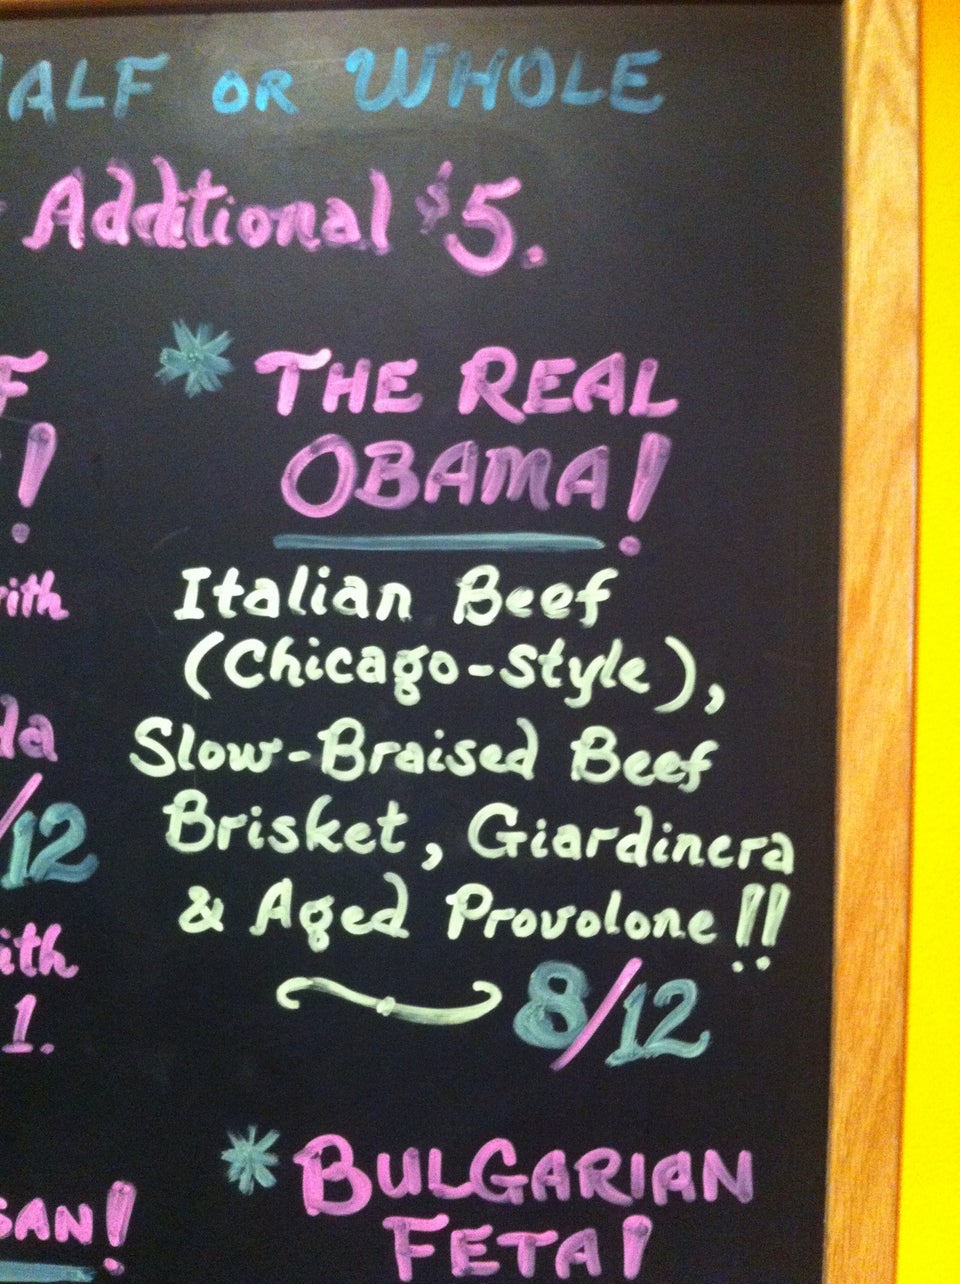 HALF OR WHOLE
Additional $5.
* THE REAL
OBAMA!
Italian Beef
(Chicago-Style),
Slow-Braised Beef
Brisket, Giardinera
& Aged Provolone!!
8/12
* BULGARIAN
FETA!
F
!
with
da
/12
with
1.
SAN!